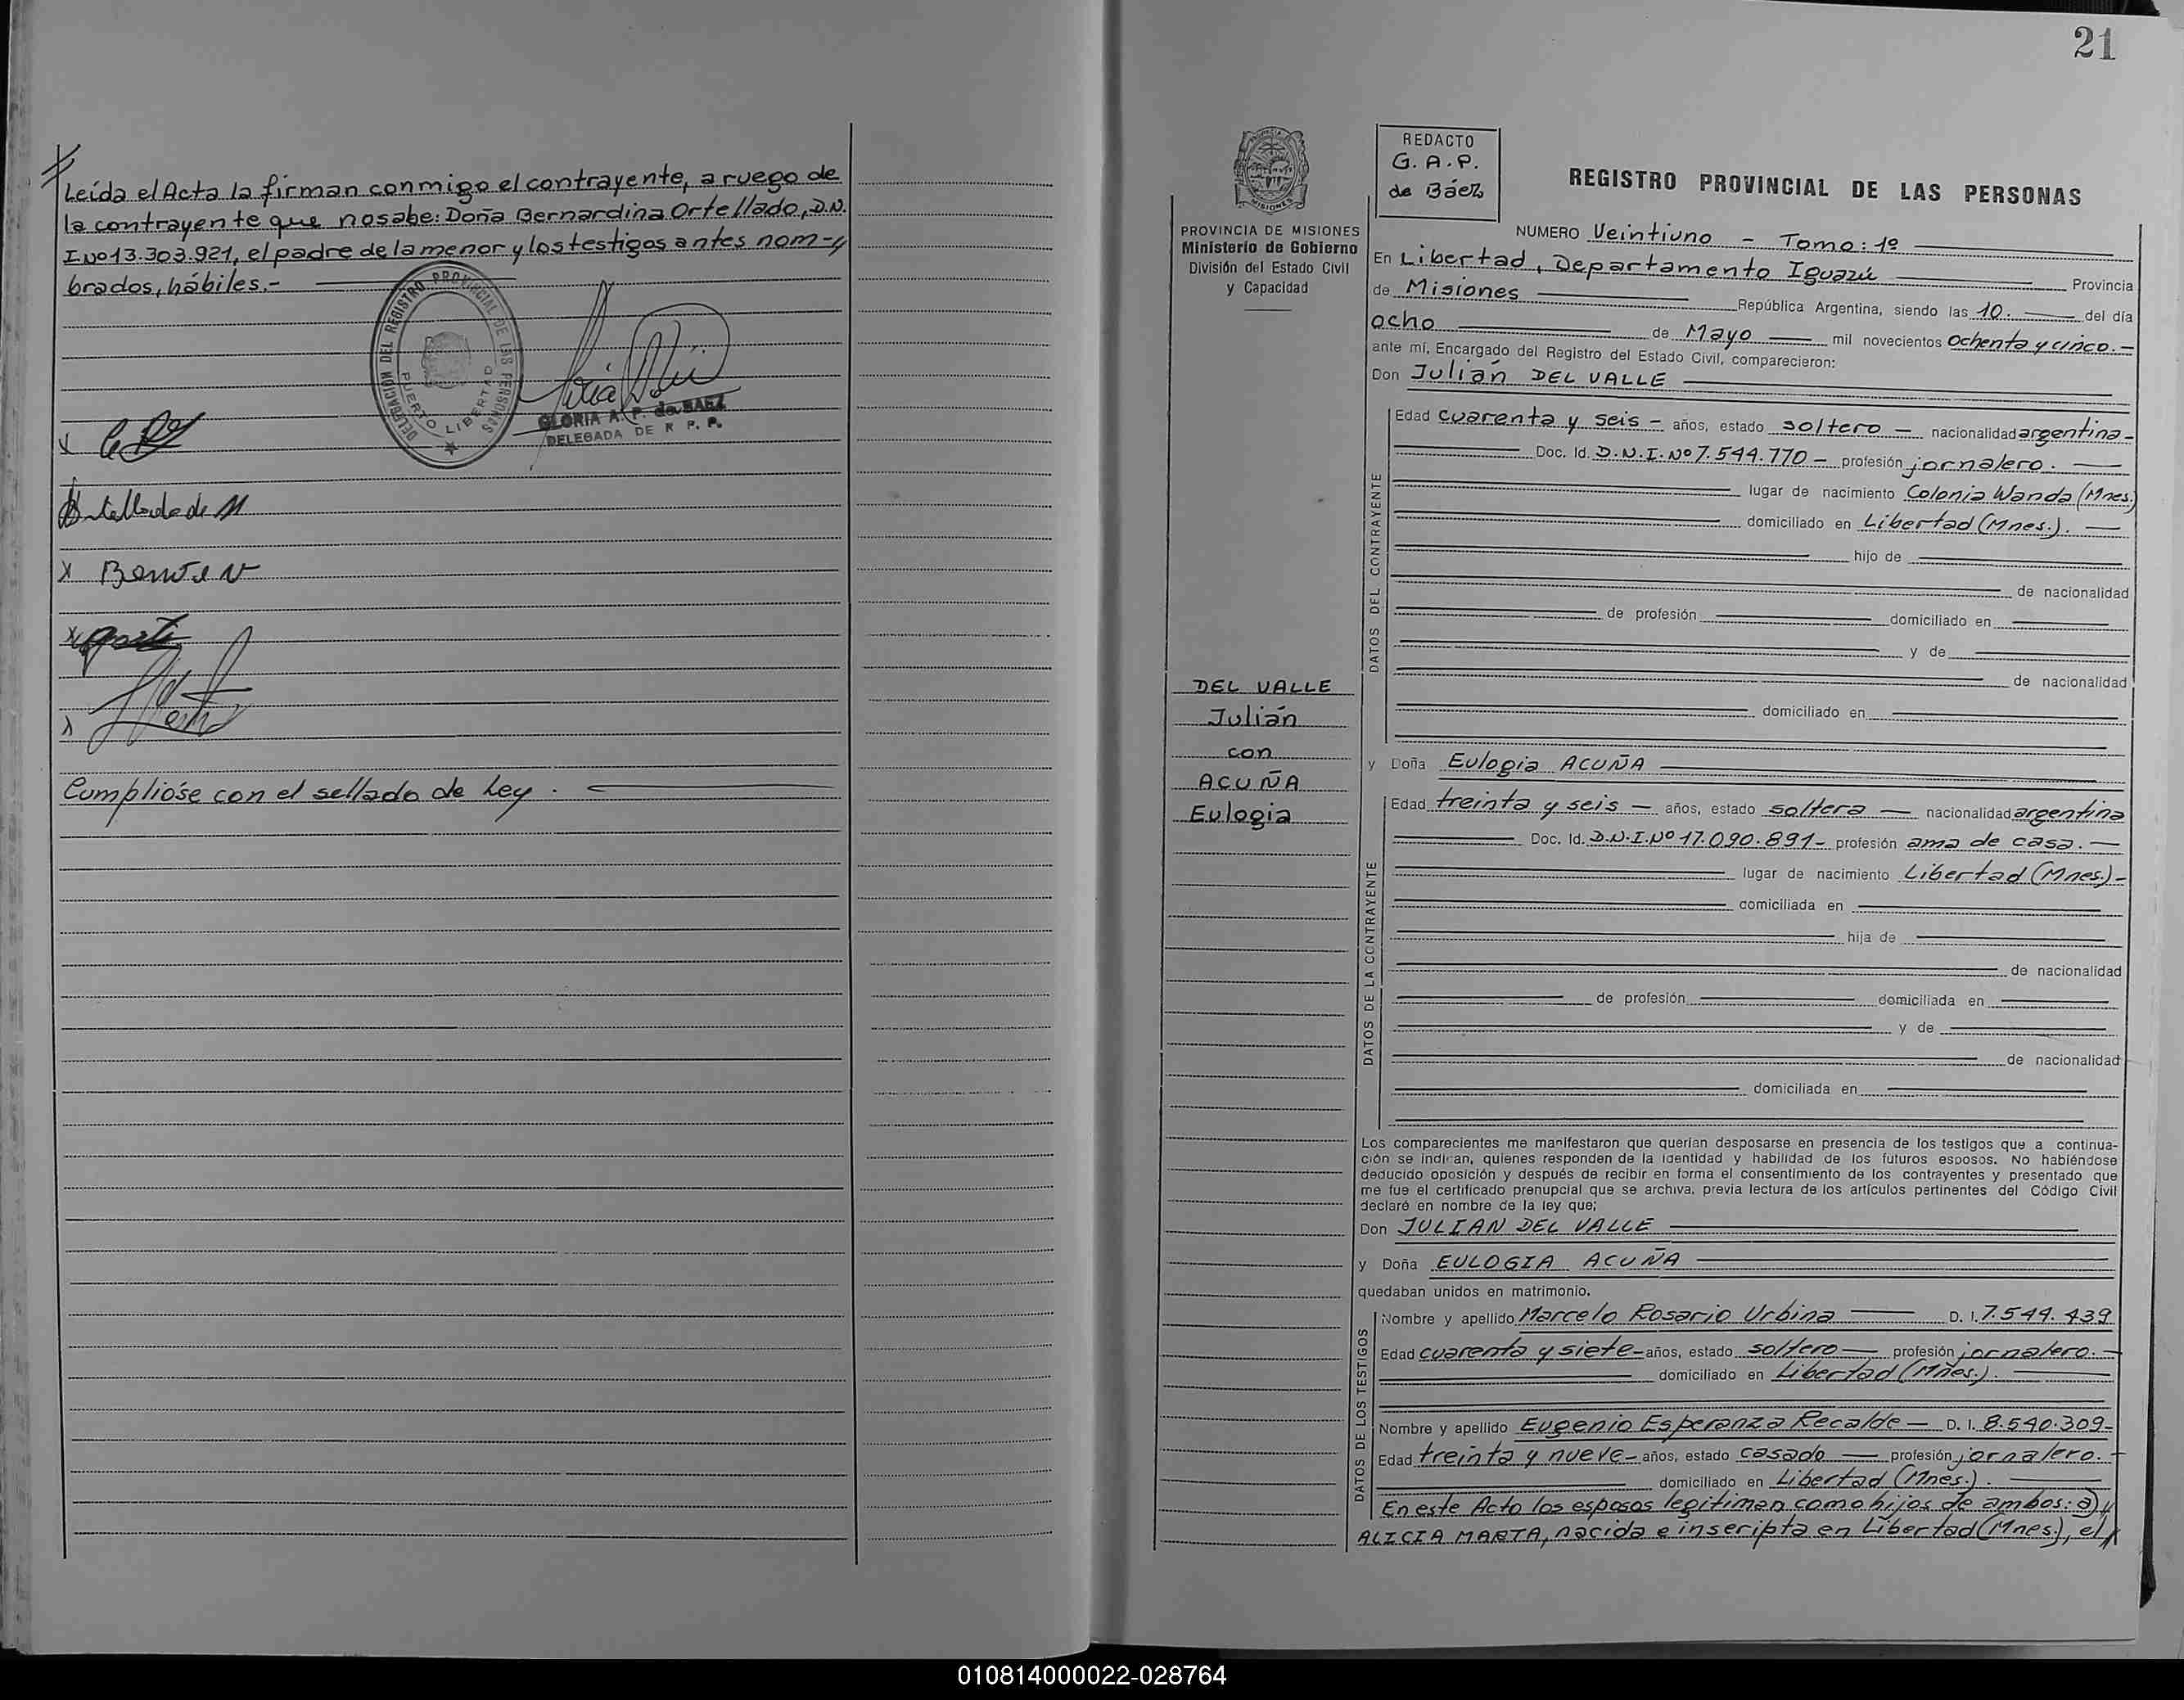 Leída el Acta la firman conmigo el contrayente, a ruego de
la contrayente que nosabe: Doña Bernardina Ortellado, D.N.
I.Nº13.303.921, el padre de la menor y los testigos antes nom-
brados, hábiles.-
DELEGACION DEL REGISTRO PROVINCIAL DE LAS PERSONAS
PUERTO LIBERTAD
GLORIA A. P. de BAEZ
DELEGADA DE R P. P.
Cumplióse con el sellado de Ley.
21
PROVINCIA DE MISIONES
Ministerio de Gobierno
División del Estado Civil
y Capacidad
DEL VALLE
Julián
con
ACUÑA
Eulogia
REDACTO
G. A. P.
de Báez
REGISTRO PROVINCIAL DE LAS PERSONAS
NUMERO Veintiuno - Tomo: 1º
En Libertad, Departamento Iguazú Provincia
de Misiones República Argentina, siendo las 10. del día
ocho de Mayo mil novecientos ochenta y cinco.-
ante mí, Encargado del Registro del Estado Civil, comparecieron:
Don Julián DEL VALLE
DATOS DEL CONTRAYENTE
Edad cuarenta y seis - años, estado soltero - nacionalidad argentina-
Doc. Id. D.N.I.Nº7.544.770 - profesión jornalero.
lugar de nacimiento Colonia Wanda (Mnes.)
domiciliado en Libertad (Mnes.).
hijo de
de nacionalidad
de profesión domiciliado en
y de
de nacionalidad
domiciliado en
y Doña Eulogia ACUÑA
DATOS DE LA CONTRAYENTE
Edad treinta y seis - años, estado soltera - nacionalidad argentina
Doc. Id. D.N.I.Nº 17.090.891- profesión ama de casa.
lugar de nacimiento Libertad (Mnes.)-
domiciliada en
hija de
de nacionalidad
de profesión domiciliada en
y de
de nacionalidad
domiciliada en
Los comparecientes me manifestaron que querían desposarse en presencia de los testigos que a continua-
ción se indican, quienes responden de la identidad y habilidad de los futuros esposos. No habiéndose
deducido oposición y después de recibir en forma el consentimiento de los contrayentes y presentado que
me fue el certificado prenupcial que se archiva, previa lectura de los artículos pertinentes del Código Civil
declaré en nombre de la ley que;
Don JULIAN DEL VALLE
y Doña EULOGIA ACUÑA
quedaban unidos en matrimonio.
DATOS DE LOS TESTIGOS
Nombre y apellido Marcelo Rosario Urbina D. I. 7.549.439
Edad cuarenta y siete - años, estado soltero - profesión jornalero.-
domiciliado en Libertad (Mnes.).
Nombre y apellido Eugenio Esperanza Recalde - D. I. 8.540.309-
Edad treinta y nueve - años, estado casado - profesión jornalero.-
domiciliado en Libertad (Mnes.).
En este Acto los esposos legitiman como hijos de ambos: a)
ALICIA MARTA, nacida e inscripta en Libertad (Mnes.), el
010814000022-028764